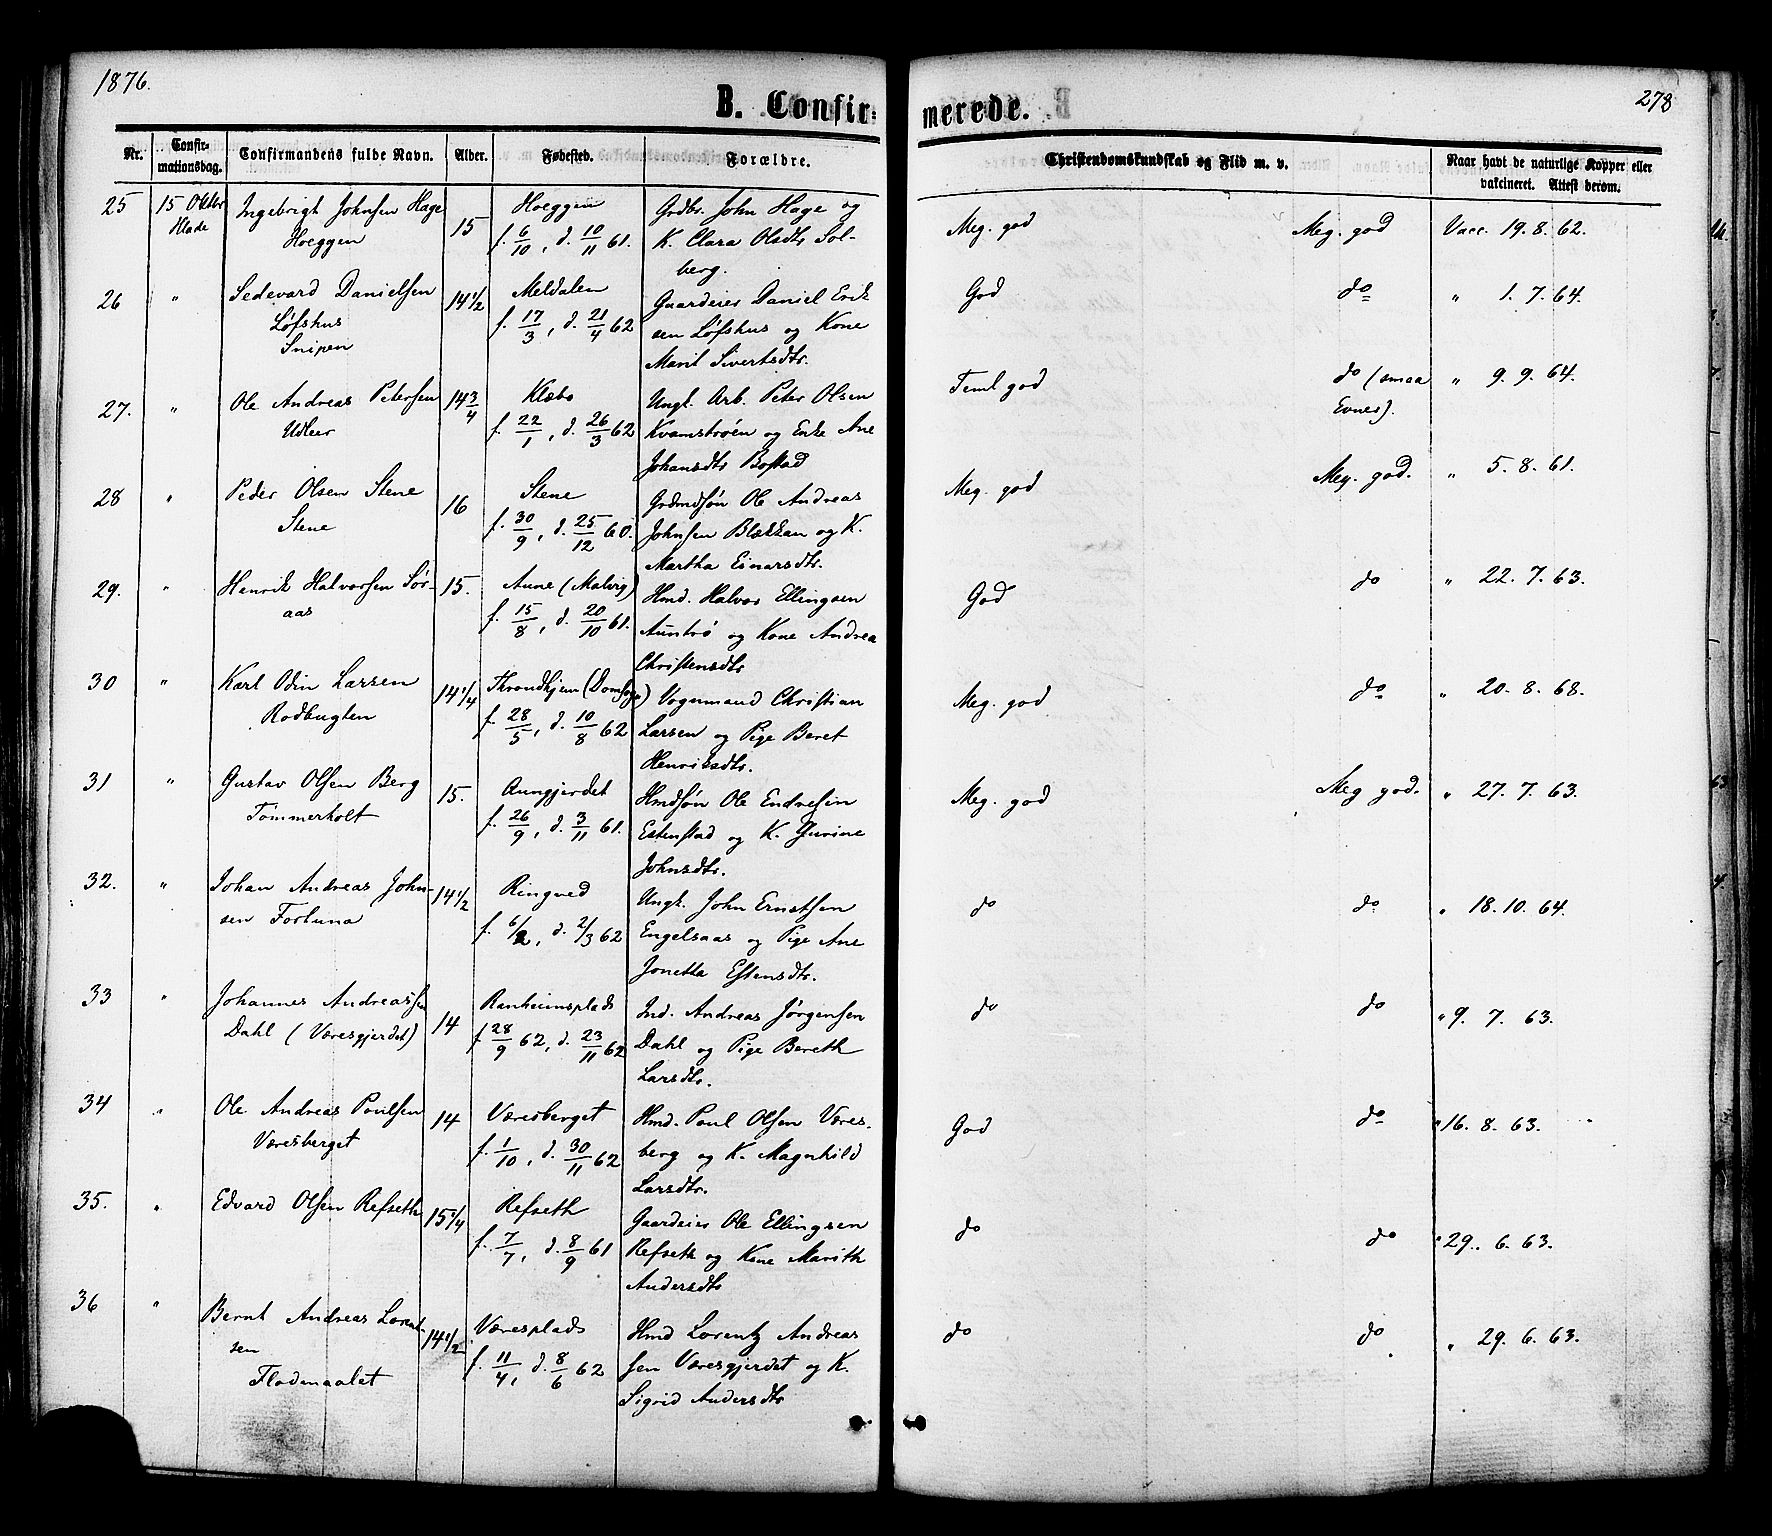 1876.
278
B. Confir=
merede.
Nr. Confirmationsdag. Confirmandens fulde Navn. Alder. Fødested. Forældre. Christendomskundskab og Flid m. v. Naar havt de naturlige Kopper eller vakcineret. Attest derom.
25 15 Oktbr Ingebrigt Johnsen Hage 15 Hoeggen Grdbr. John Hage og Meg. god Meg. god Vacc. 19. 8. 62.
Hlade Hoeggen f. 6/10, d. 10/11 61. K. Clara Olsdtr Sol-
berg.
26 " Sedevard Danielsen 14 1/2 Meldalen Gaardeier Daniel Erik God do " 1. 7. 64.
Løfshus f. 17/3, d. 21/4 62 sen Løfshus og Kone
Snipen Marit Sivertsdtr.
27. " Ole Andreas Petersen 14 3/4 Klæbo Ungk. Arb. Peter Olsen Teml god do (smaa " 9. 9. 64.
Udleer f. 22/1, d. 26/3 62 Kvamstrøen og Enke Ane Evner).
Johansdtr Bostad
28 " Peder Olsen Stene 16 Stene Grdmdsøn Ole Andreas Meg. god Meg. god. " 5. 8. 61.
Stene f. 30/9, d. 25/12 60. Johnsen Blækkan og K.
Martha Einarsdtr.
29. " Henrik Halvorsen Sør- 15. Aune (Malvig) Hmd. Halvor Ellingsen God do " 22. 7. 63.
aas f. 15/8, d. 20/10 61. Auntrø og Kone Andrea
Christensdtr
30 " Karl Odin Larsen 14 1/4 Throndhjem (Domsogn) Vognmand Christian Meg. god do " 20. 8. 68.
Rodbugten f. 28/5, d. 10/8 62 Larsen og Pige Beret
Henriksdtr.
31 " Gustav Olsen Berg 15. Aungjerdet Hmdsøn Ole Endresen Meg. god Meg god. " 27. 7. 63.
Tømmerholt f. 26/9, d. 3/11 61. Estenstad og K. Gurine
Johnsdtr.
32. " Johan Andreas John- 14 1/2 Ringved Ungk. John Ernstsen do do " 18. 10. 64.
sen Fortuna f. 6/2, d. 2/3 62 Engelsaas og Pige Ane
Jonetta Estensdtr.
33 " Johannes Andreassen 14 Ranheimsplads Ind. Andreas Jørgensen do do " 9. 7. 63.
Dahl (Væresgjerdet) f 28/9 62, d. 23/11 62 Dahl og Pige Bereth
Larsdtr.
34 " Ole Andreas Poulsen 14 Væresberget Hmd. Poul Olsen Væres- God do " 16. 8. 63.
Væresberget f. 1/10, d. 30/11 62 berg og K. Magnhild
Larsdtr.
35. " Edvard Olsen Refseth 15 1/4 Refseth Gaardeier Ole Ellingsen do do " 29. 6. 63.
f. 7/7, d. 8/9 61 Refseth og Kone Marith
Andersdtr
36 " Bernt Andreas Lorent- 14 1/2 Væresplads Hmd Lorentz Andreas do do " 29. 6. 63.
sen f. 11/4, d. 8/6 62 sen Væresgjerdet og K.
Flodmaalet Sigrid Andersdtr